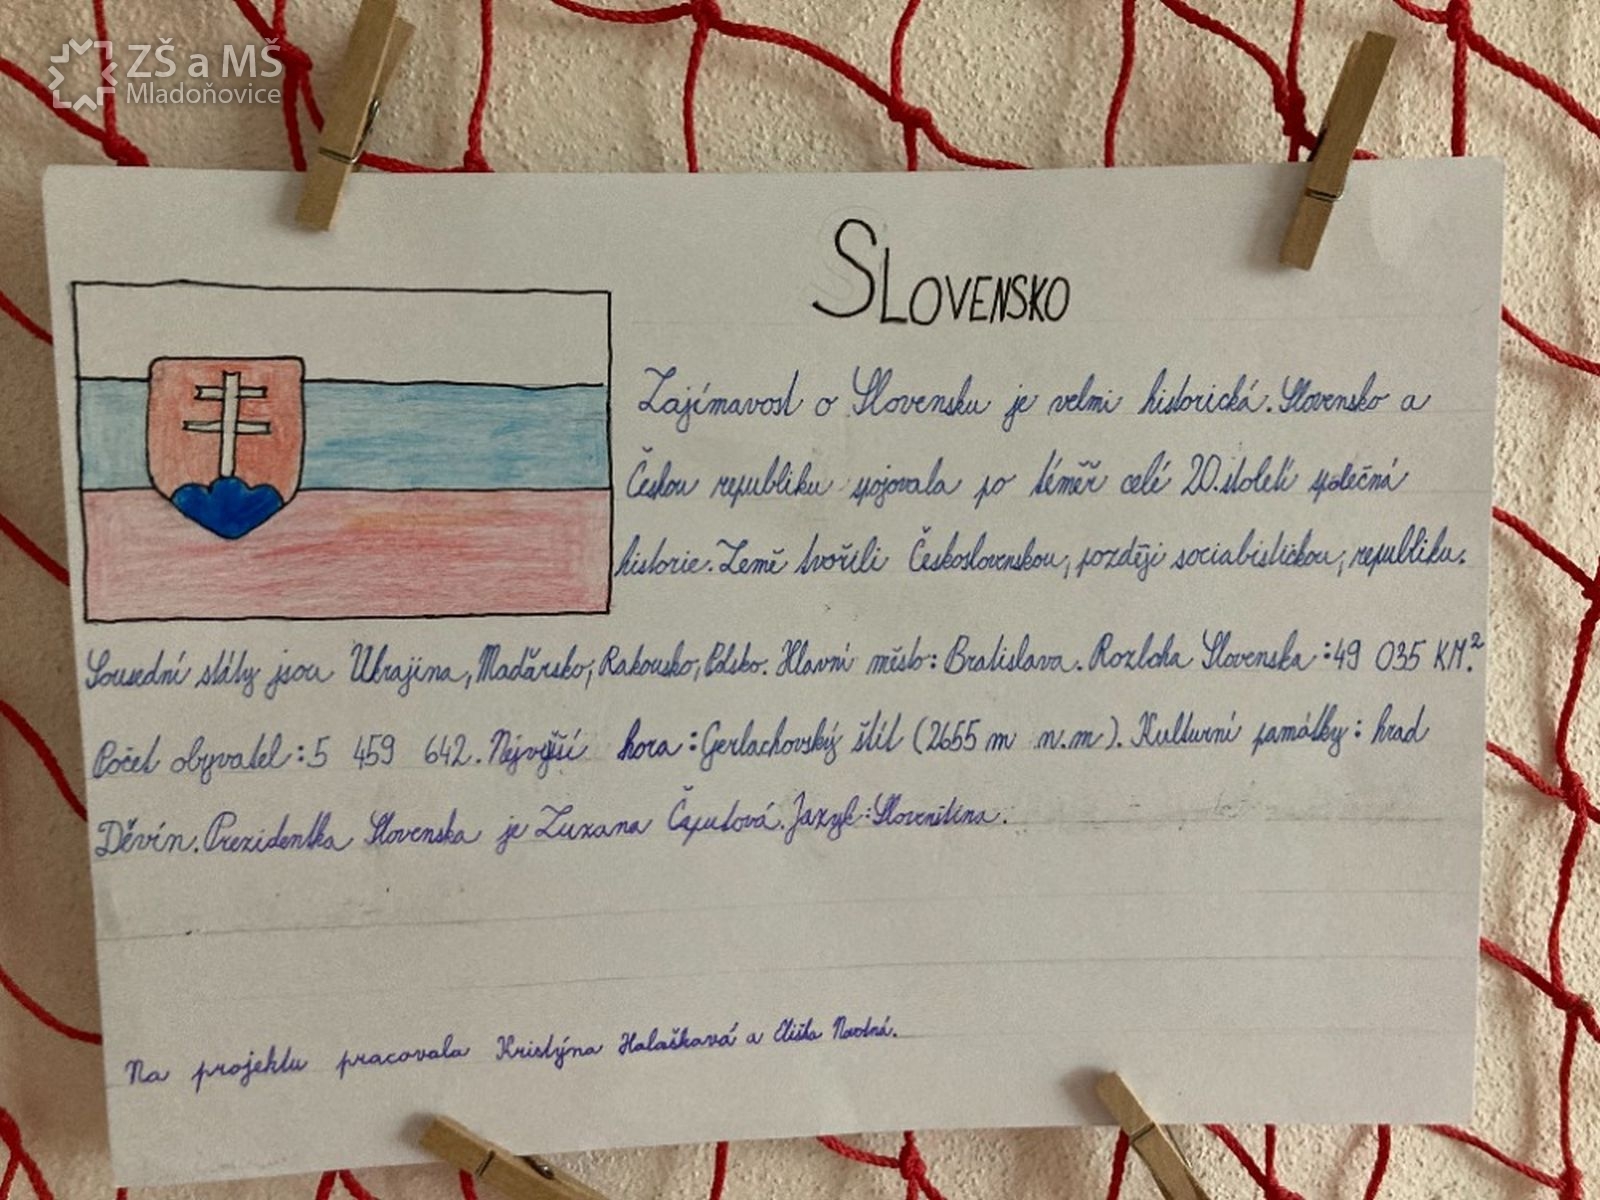 ZŠ a MŠ
Mladoňovice
SLOVENSKO
Zajímavost o Slovensku je velmi historická. Slovensko a
Českou republiku spojovala po téměř celé 20. století společná
historie. Země tvořili Československou, později socialistickou, republiku.
Sousední státy jsou Ukrajina, Maďarsko, Rakousko, Polsko. Hlavní město: Bratislava. Rozloha Slovenska: 49 035 KM².
Počet obyvatel: 5 459 642. Nejvyšší hora: Gerlachovský štít (2655 m n.m). Kulturní památky: hrad
Děvín. Prezidentka Slovenska je Zuzana Čaputová. Jazyk: Slovenština.
Na projektu pracovala Kristýna Halašková a Eliška Navolná.